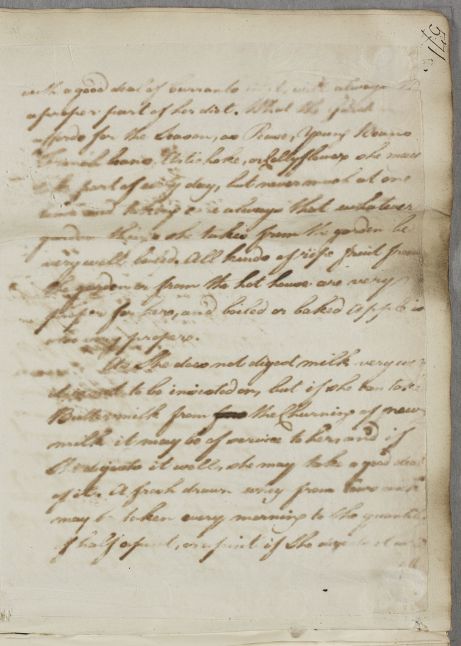 571
with a good deal of Currants will always be
a proper part of her diet. What the
affords for the Season, as Pease, Young Beans
French beans, Artichoke, or Collyflower she may
part of every day, but never much at one
time and taking care always that whatever
garden things she takes from the garden be
very well boiled. All kinds of ripe fruit from
the garden or from the hot house are very
proper for her, and boiled or baked Apple is
also very proper.
As she does not digest milk very well
it is not to be insisted on, but if she can take
Buttermilk from the Churning of new
milk it may be of service to her, and if
She digests it well, she may take a good deal
of it. A fresh drawn whey from
may be taken every morning to the quantity
of half a pint, or a pint if she